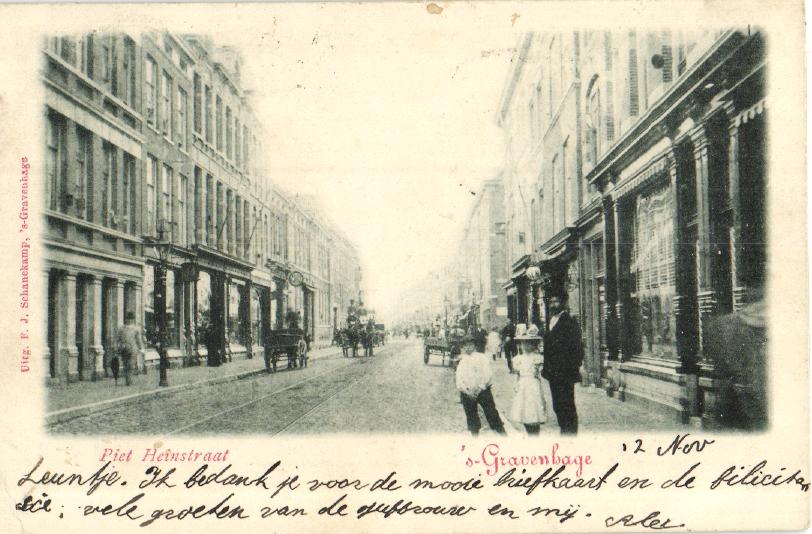 Uitg. F. J. Schanekamp, 's-Gravenhage
Piet Heinstraat
's-Gravenhage
12 Nov
Leuntje. Ik bedank je voor de mooie briefkaart en de filicita
tie; vele groeten van de juffrouw en mij.